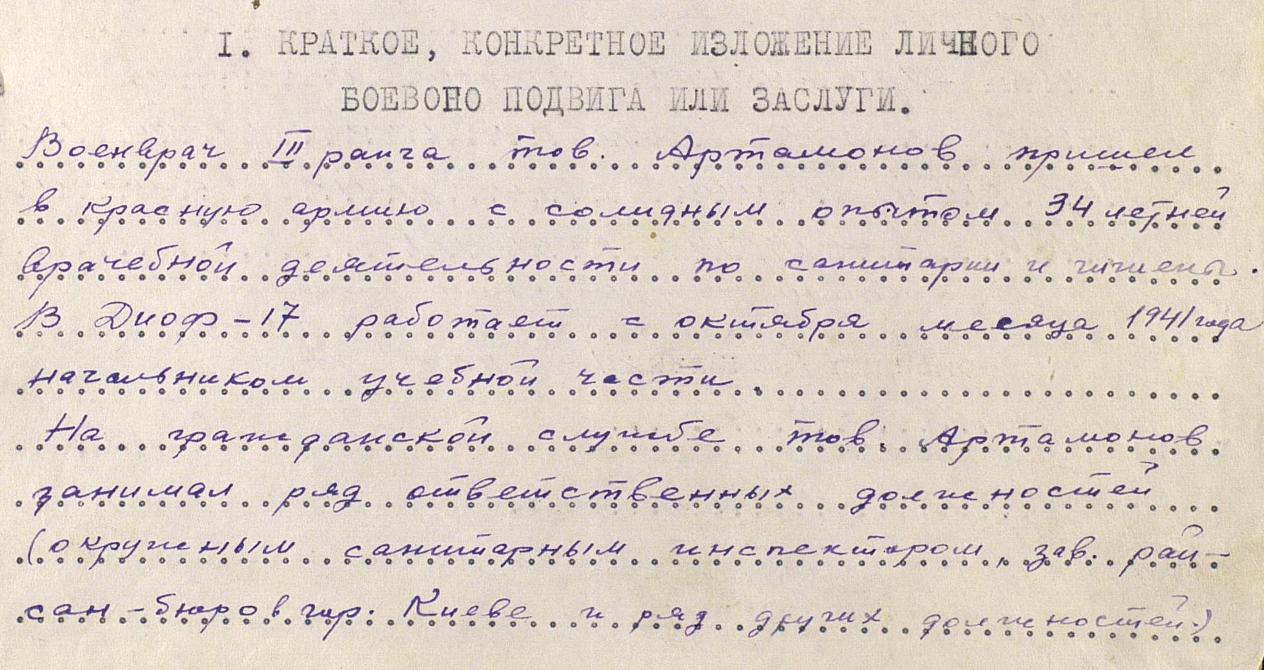 I. КРАТКОЕ, КОНКРЕТНОЕ ИЗЛОЖЕНИЕ ЛИЧНОГО
БОЕВОНО ПОДВИГА ИЛИ ЗАСЛУГИ.
Военврач III ранга тов. Артамонов пришел
в красную армию с солидным опытом 34 летней
врачебной деятельности по санитарии и гигиены.
В Диоф-17 работает с октября месяца 1941 года
начальником учебной части.
На гражданской службе тов. Артамонов
занимал ряд ответственных должностей
(окружным санитарным инспектором, зав. рай-
сан-бюро в гор. Киеве и ряд других должностей)